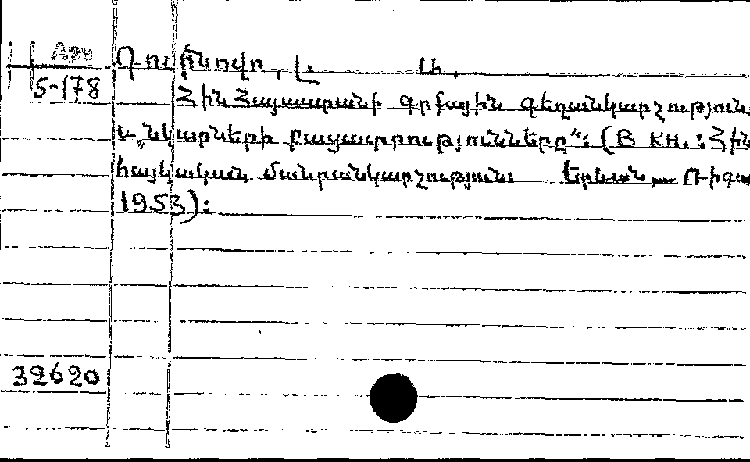 Арм
5-178
Դուռնովո, Լ. Ա.
Հին Հայաստանի գրքային գեղանկարչություն
և „նկարների բացատրությունները“: (В кн.: Հին
հայկական մանրանկարչություն: Երևան
1953):
32620